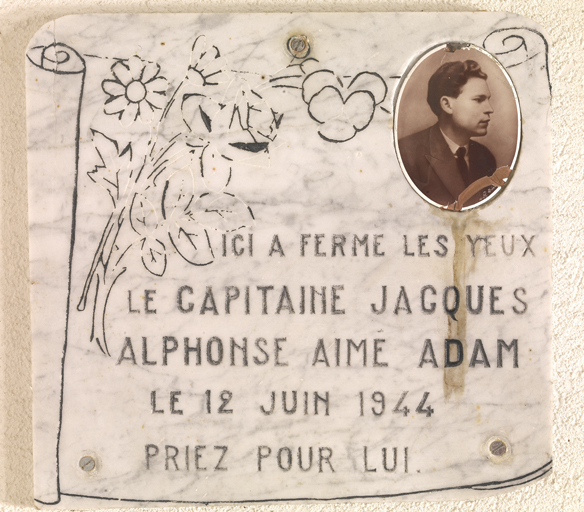 ICI A FERME LES YEUX
LE CAPITAINE JACQUES
ALPHONSE AIMÉ ADAM
LE 12 JUIN 1944
PRIEZ POUR LUI.